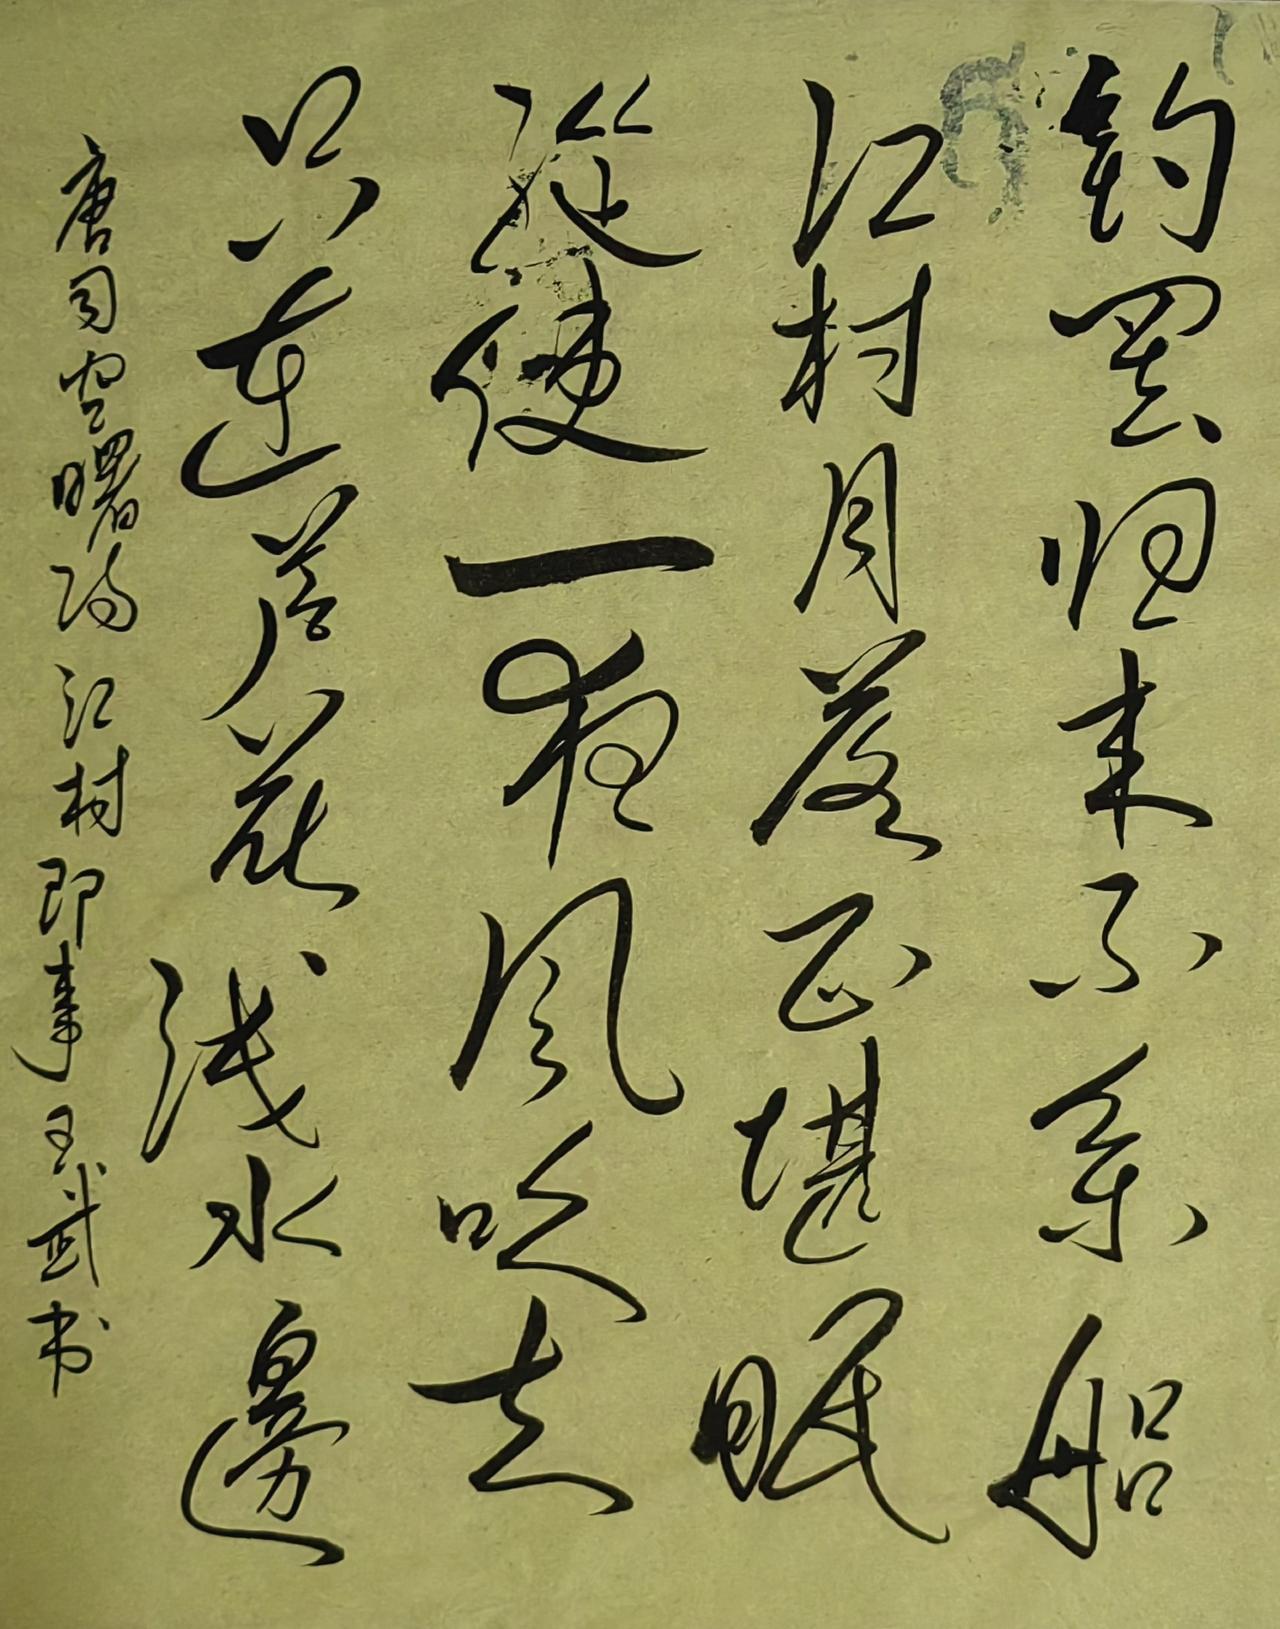 钓罢归来不系船
江村月落正堪眠
縱使一夜风吹去
只在芦花浅水邊
唐司空曙 江村即事 王武书